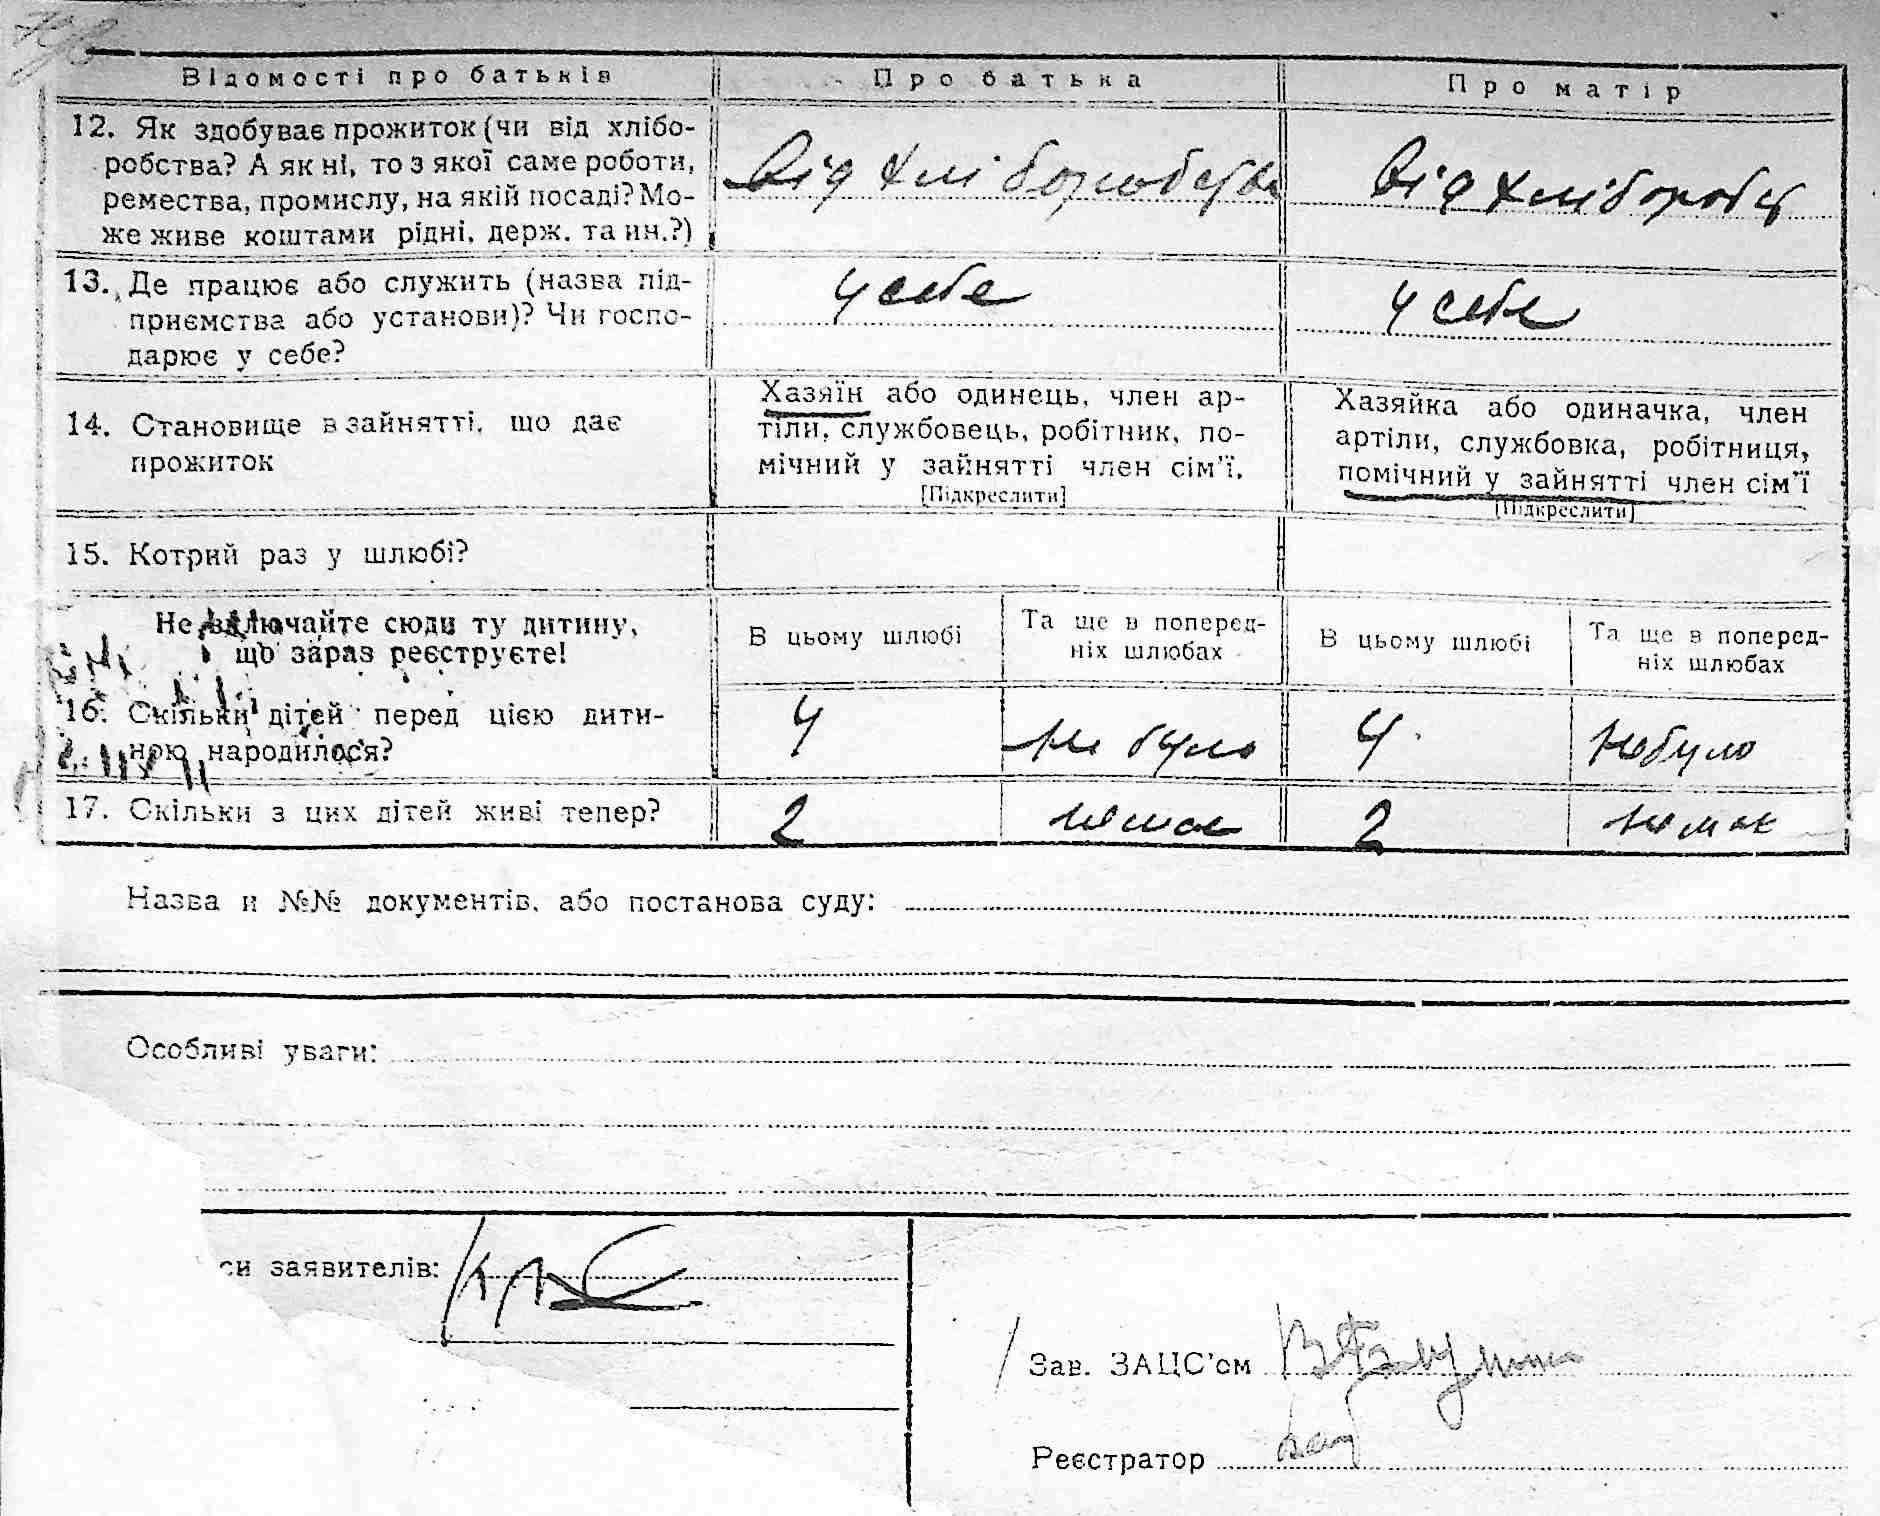 Відомості про батьків
Про батька
Про матір
12. Як здобуває прожиток (чи від хлібо-
робства? А як ні, то з якої саме роботи,
ремества, промислу, на якій посаді? Мо-
же живе коштами рідні, держ. та ин.?)
Від хліборобства
Від хліборобст
13. Де працює або служить (назва під-
приємства або установи)? Чи госпо-
дарює у себе?
У себе
У себе
14. Становище в зайнятті, що дає
прожиток
Хазяїн або одинець, член ар-
тіли, службовець, робітник, по-
мічний у зайнятті член сім'ї.
[Підкреслити]
Хазяйка або одиначка, член
артіли, службовка, робітниця,
помічний у зайнятті член сім'ї
[Підкреслити]
15. Котрий раз у шлюбі?
Не включайте сюди ту дитину,
що зараз реєструєте!
В цьому шлюбі
Та ще в поперед-
ніх шлюбах
В цьому шлюбі
Та ще в поперед-
ніх шлюбах
16. Скільки дітей перед цією дити-
ною народилося?
4
не було
4
не було
17. Скільки з цих дітей живі тепер?
2
немає
2
немає
Назва и №№ документів, або постанова суду:
Особливі уваги:
си заявителів:
Зав. ЗАЦС'ом
Реєстратор